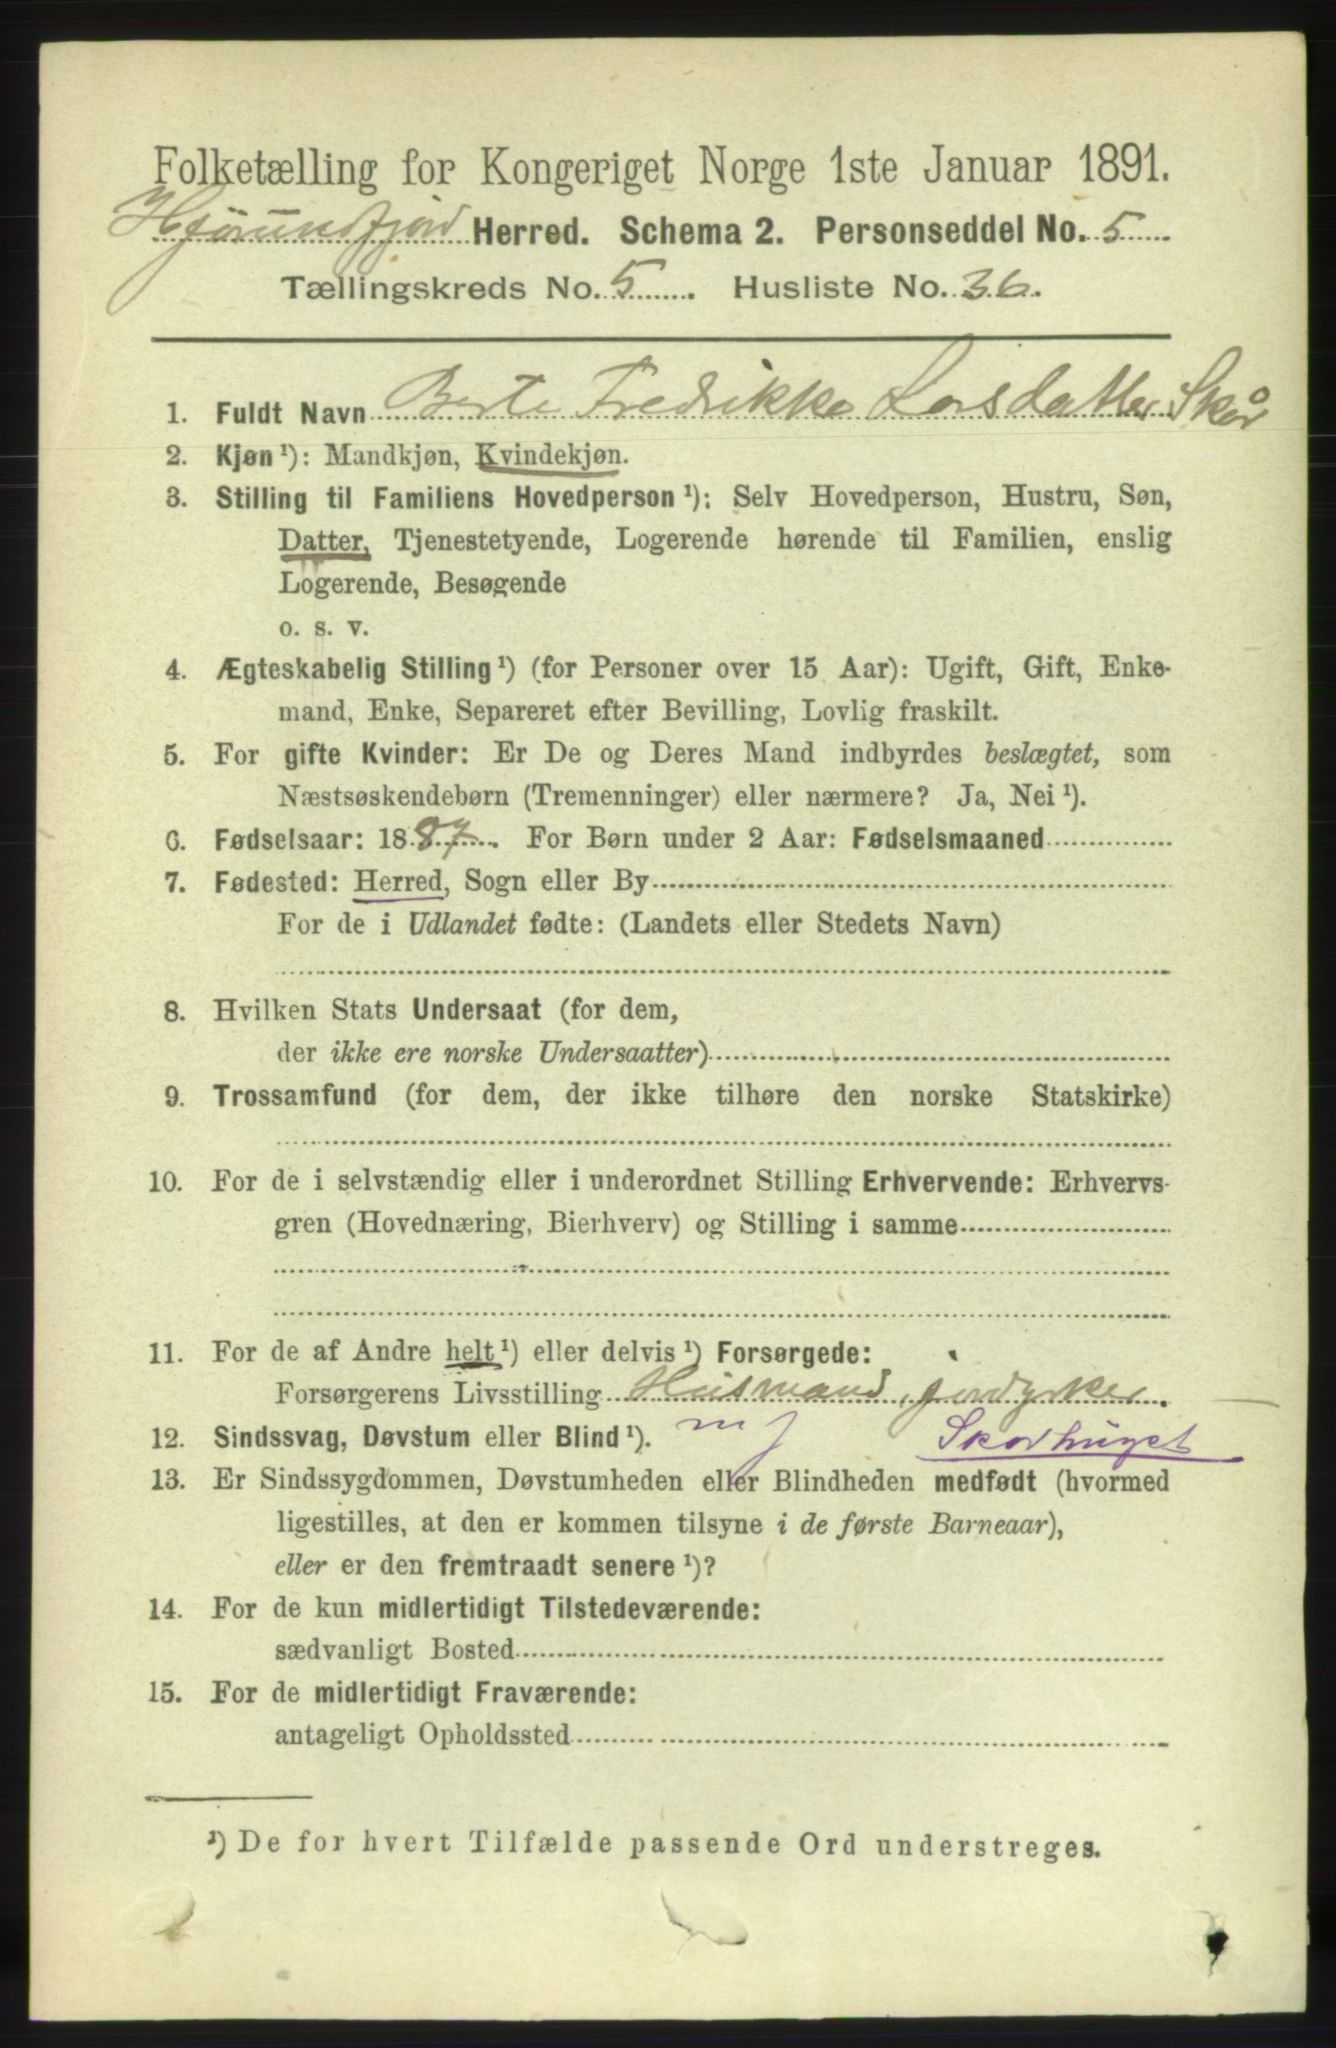 Folketælling for Kongeriget Norge 1ste Januar 1891.
Hjørundfjord Herred. Schema 2. Personseddel No. 5
Tællingskreds No. 5. Husliste No. 36.
1. Fuldt Navn Berte Fredrikke Larsdatter Skår
2. Kjøn ¹): Mandkjøn, Kvindekjøn.
3. Stilling til Familiens Hovedperson ¹): Selv Hovedperson, Hustru, Søn,
Datter, Tjenestetyende, Logerende hørende til Familien, enslig
Logerende, Besøgende
o. s. v.
4. Ægteskabelig Stilling ¹) (for Personer over 15 Aar): Ugift, Gift, Enke-
mand, Enke, Separeret efter Bevilling, Lovlig fraskilt.
5. For gifte Kvinder: Er De og Deres Mand indbyrdes beslægtet, som
Næstsøskendebørn (Tremenninger) eller nærmere? Ja, Nei ¹).
6. Fødselsaar: 1887. For Børn under 2 Aar: Fødselsmaaned
7. Fødested: Herred, Sogn eller By
For de i Udlandet fødte: (Landets eller Stedets Navn)
8. Hvilken Stats Undersaat (for dem,
der ikke ere norske Undersaatter)
9. Trossamfund (for dem, der ikke tilhøre den norske Statskirke)
10. For de i selvstændig eller i underordnet Stilling Erhvervende: Erhvervs-
gren (Hovednæring, Bierhverv) og Stilling i samme
11. For de af Andre helt ¹) eller delvis ¹) Forsørgede:
Forsørgerens Livsstilling Husmand, jordyrker.
12. Sindssvag, Døvstum eller Blind ¹). mj
13. Er Sindssygdommen, Døvstumheden eller Blindheden medfødt (hvormed
ligestilles, at den er kommen tilsyne i de første Barneaar),
eller er den fremtraadt senere ¹)?
14. For de kun midlertidigt Tilstedeværende:
sædvanligt Bosted
15. For de midlertidigt Fraværende:
antageligt Opholdssted
¹) De for hvert Tilfælde passende Ord understreges.